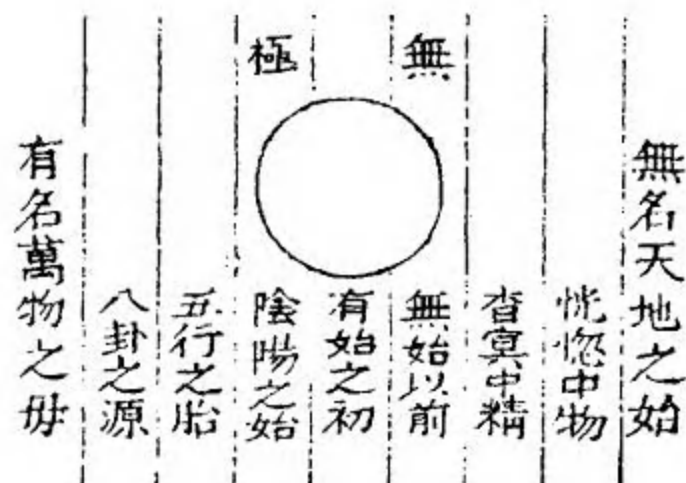 無極
無名天地之始
恍惚中物
杳冥中精
無始以前
有始之初
陰陽之始
五行之胎
八卦之源
有名萬物之母